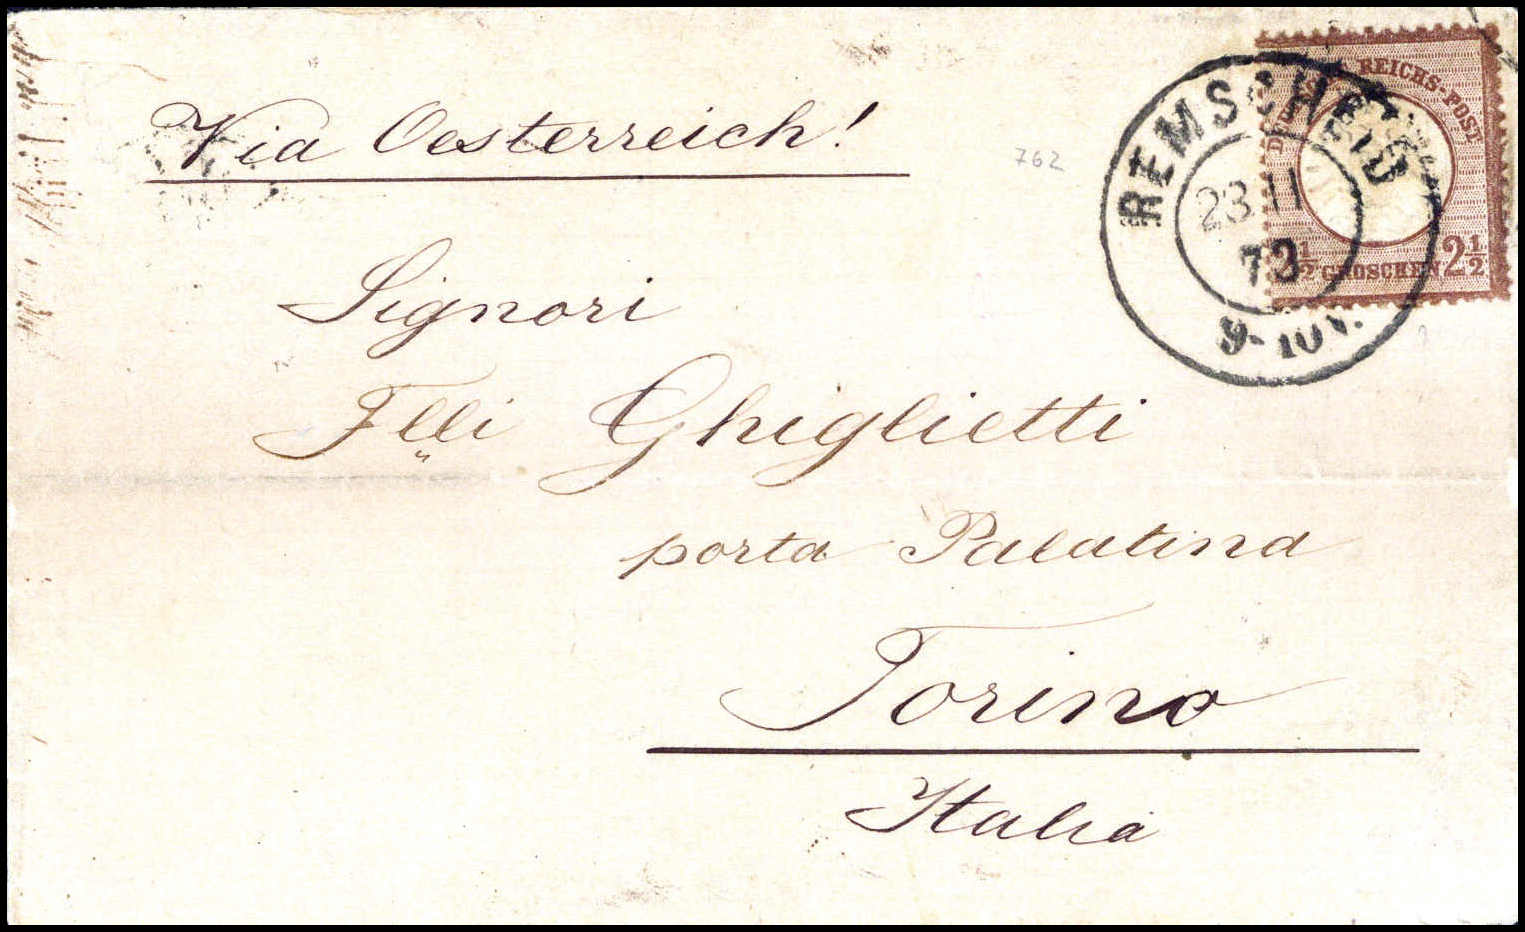 Via Oesterreich!
762
REMSCHEID
23 11
73
9-10 V.
REICHS-POST
2½ GROSCHEN 2½
Signori
Flli Ghiglietti
porta Palatina
Torino
Italia